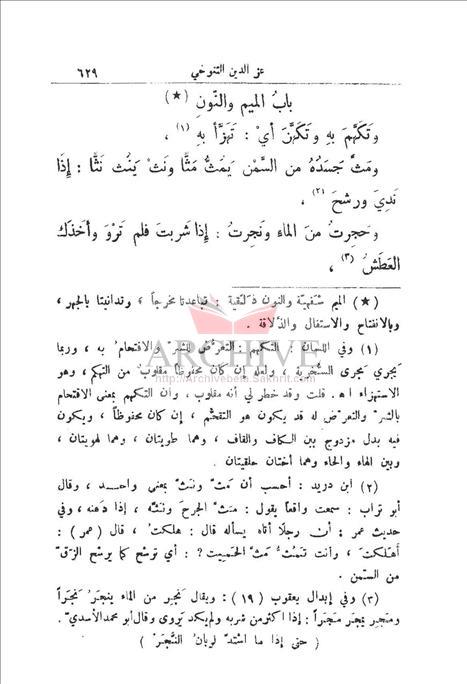 عز الدين التنوخي ٦٢٩
بابُ الميم والنّونِ (★)
وتَكَهَّمَ بِهِ وتَكَهَّنَ أيْ : تَهَزَّأ بِهِ (١) ،
ومَثَّ جَسَدُهُ من السَّمْن يَمَثُّ مَثًّا ونَثَّ يَنُث نَثًّا : إذَا
نَدِيَ ورشحَ (٢) ،
و مَجِرتُ منَ الماءِ ونَجِرتُ : إذا شَربتَ فلم تَرْوَ وأخذَكَ
العَطَشُ (٣) ،
(★) الميم شفهيّة والنون ذَلْقية : تباعدتا مخرجاً ، وتدانيتا بالجهر ،
وبالانفتاح والاستفال والذّلاقة .
(١) وفي اللسان : التكهّم : التعرّض للشرّ والاقتحامُ به ، وربما
يجري مجرى السُّخرية ، ولعله إن كان محفوظاً مقلوب من التهكم ، وهو
الاستهزاء اه . قلت وقد خطر لي أنه مقلوب ، وأن التكهّم بمعنى الاقتحام
بالشرّ والتعرّض له قد يكون هو التقحّم ، إن كان محفوظاً ، ويكون
فيه بدل مزدوج بين الكاف والقاف ، وهما طويتان ، وهما لهويتان ،
وبين الهاء والحاء وهما أختان حلقيتان .
(٢) ابن دريد : أحسب أن مَثّ ونثّ بمعنى واحد ، وقال
أبو تراب : سمعت واقعاً يقول : مَثّ الجرحَ ونثّه ، إذا دَهنه ، وفي
حديث عمر : أن رجلًا أتاه يسأله قال : هلكتُ ، قال (عمر) :
أهلكتَ ، وأنت تَمُثُّ مَثّ الحَميت ؟ : أي ترشح كما يرشح الزقّ
من السمن .
(٣) وفي إبدال يعقوب (١٩) : ويقال نَجِر من الماء ينجَرُ نَجَراً
ومَجِر يمجَر مَجَراً : إذا اكثر من شربه ولم يكد يَروى وقال أبو محمد الأسديّ .
( حتى إذا ما اشتدّ لوبانُ النَّجَرْ )
ARCHIVE
http://Archivebeta.Sakhrit.com